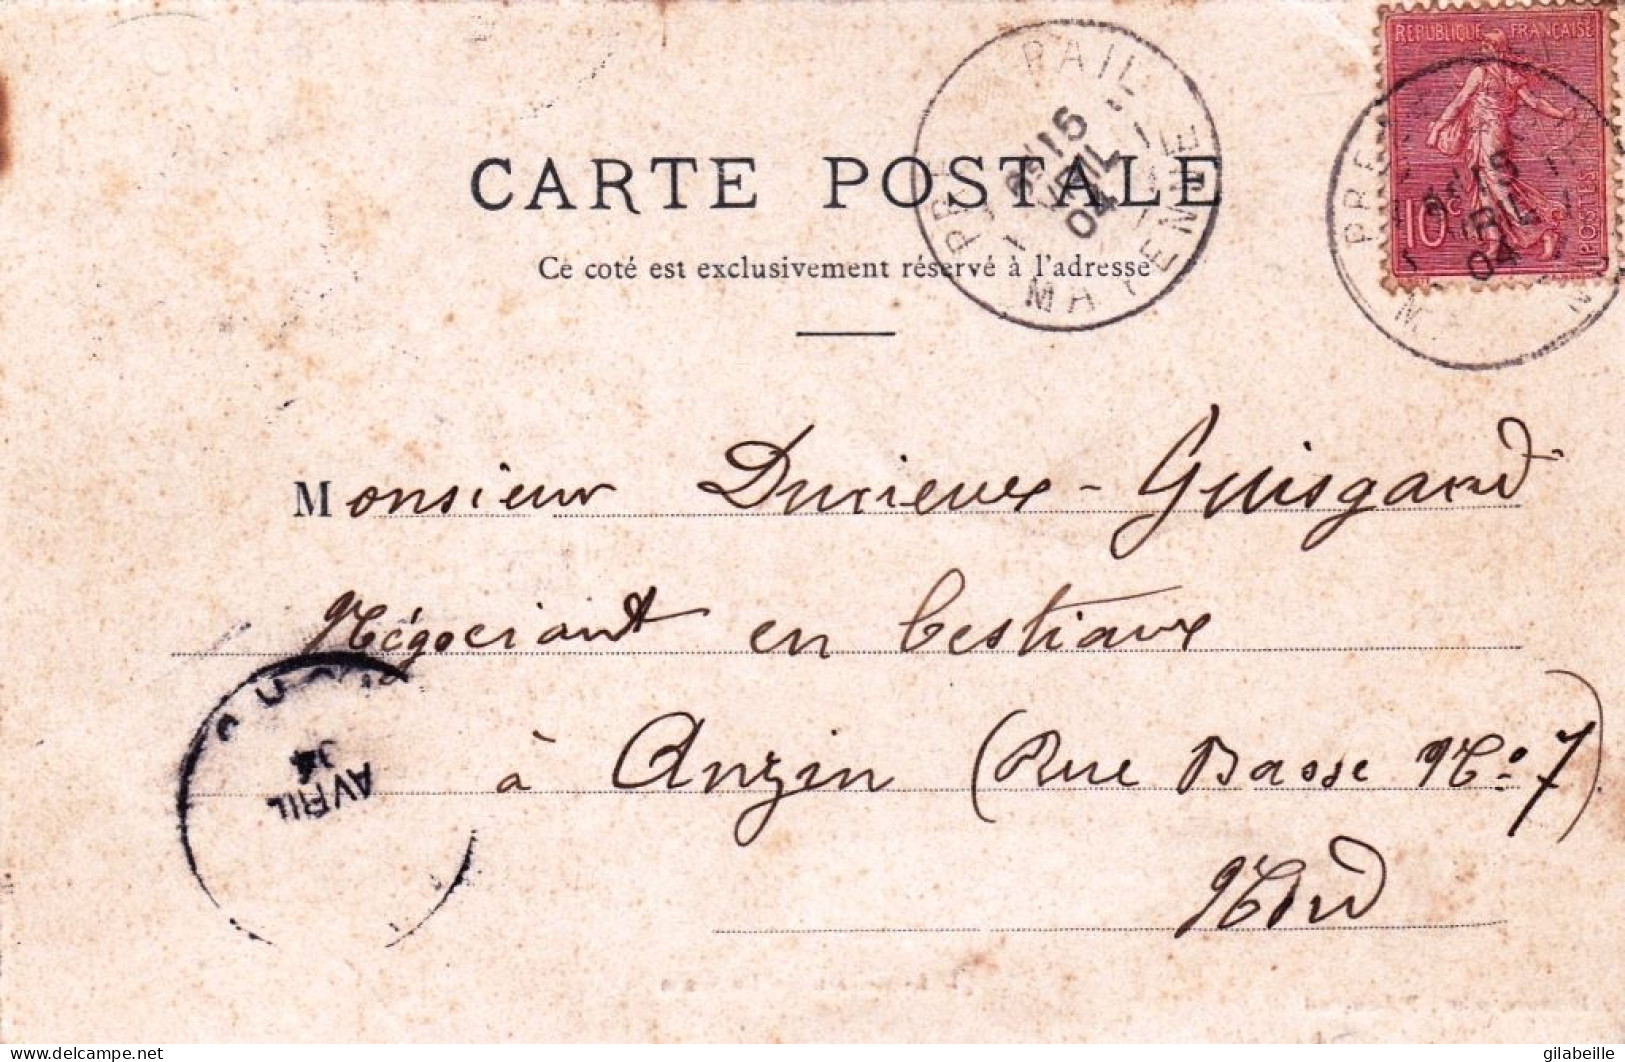 RÉPUBLIQUE FRANÇAISE
10c
POSTES
PRE EN PAIL
15
AVRIL
04
MAYENNE
CARTE POSTALE
Ce coté est exclusivement réservé à l'adresse
Monsieur Durieux - Guisgand
Négociant en bestiaux
à Anzin (Rue Basse No 7)
Nord
AVRIL
04
www.delcampe.net
gilabeille